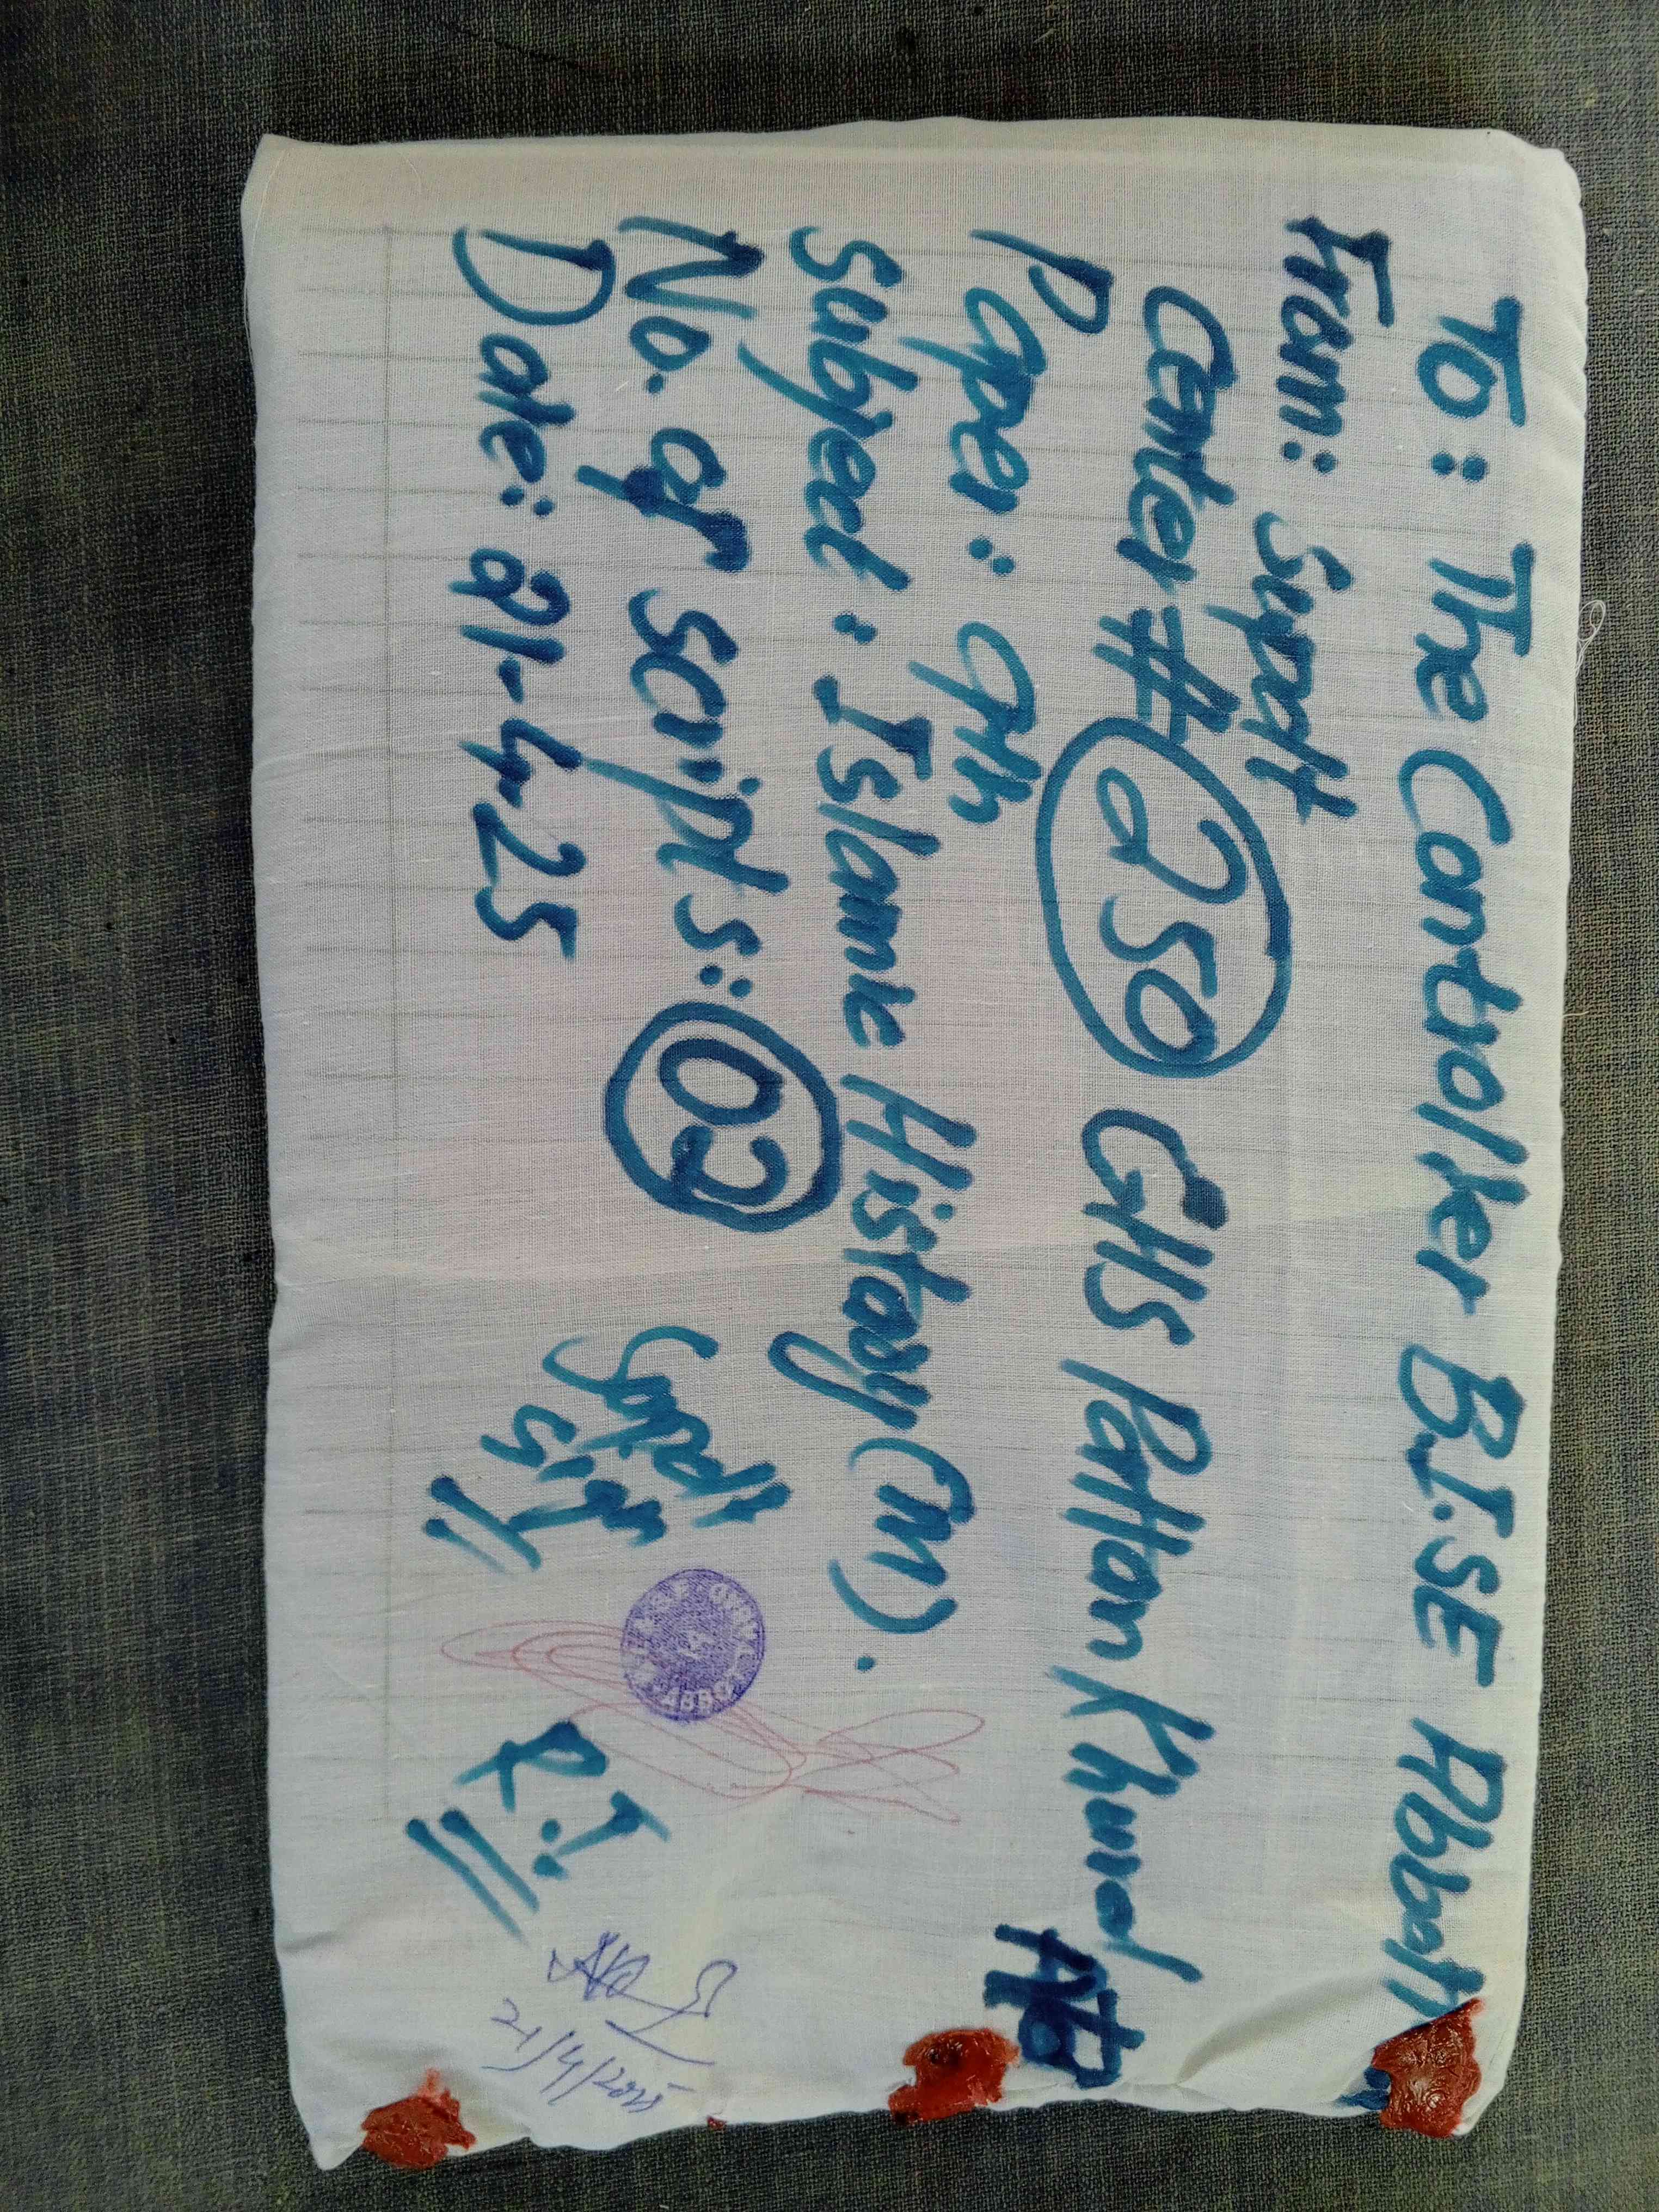 To: The Controlker B.I.SE Abbott
From: Supdt
Center # 250 GHS Pattan Khurd
ATD
Paper: 9th
Subject: Islamic History (M).
No. of scripts: 03
Date: 21-4-25
Supdt
Sig
21/4/2025